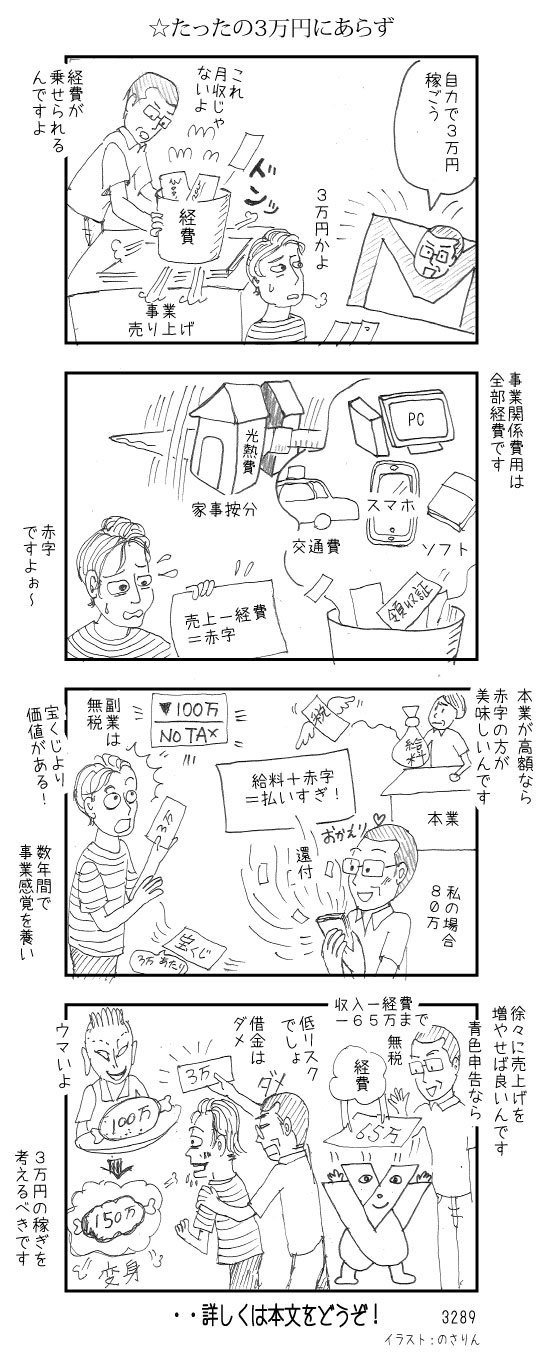 ☆たったの3万円にあらず
自力で3万円
稼ごう
3万円かよ
ドンッ
これ
月収じゃ
ないよ
経費が
乗せられる
んですよ
経費
事業
売り上げ
事業関係費用は
全部経費です
PC
スマホ
ソフト
交通費
領収証
光熱費
家事按分
売上ー経費
＝赤字
赤字
ですよぉ～
本業が高額なら
赤字の方が
美味しいんです
給料
本業
税
給料＋赤字
＝払いすぎ！
おかえり♡
還付
私の場合
80万
▼100万
NO TAX
副業は
無税
3万
宝くじより
価値がある！
宝くじ
3万あたり
数年間で
事業感覚を養い
徐々に売上げを
増やせば良いんです
青色申告なら
収入ー経費
ー65万まで
無税
経費
65万
低リスク
でしょ
借金は
ダメ
ダメ
3万
ウマいよ
100万
150万
変身
3万円の稼ぎを
考えるべきです
・・詳しくは本文をどうぞ！
3289
イラスト：のさりん